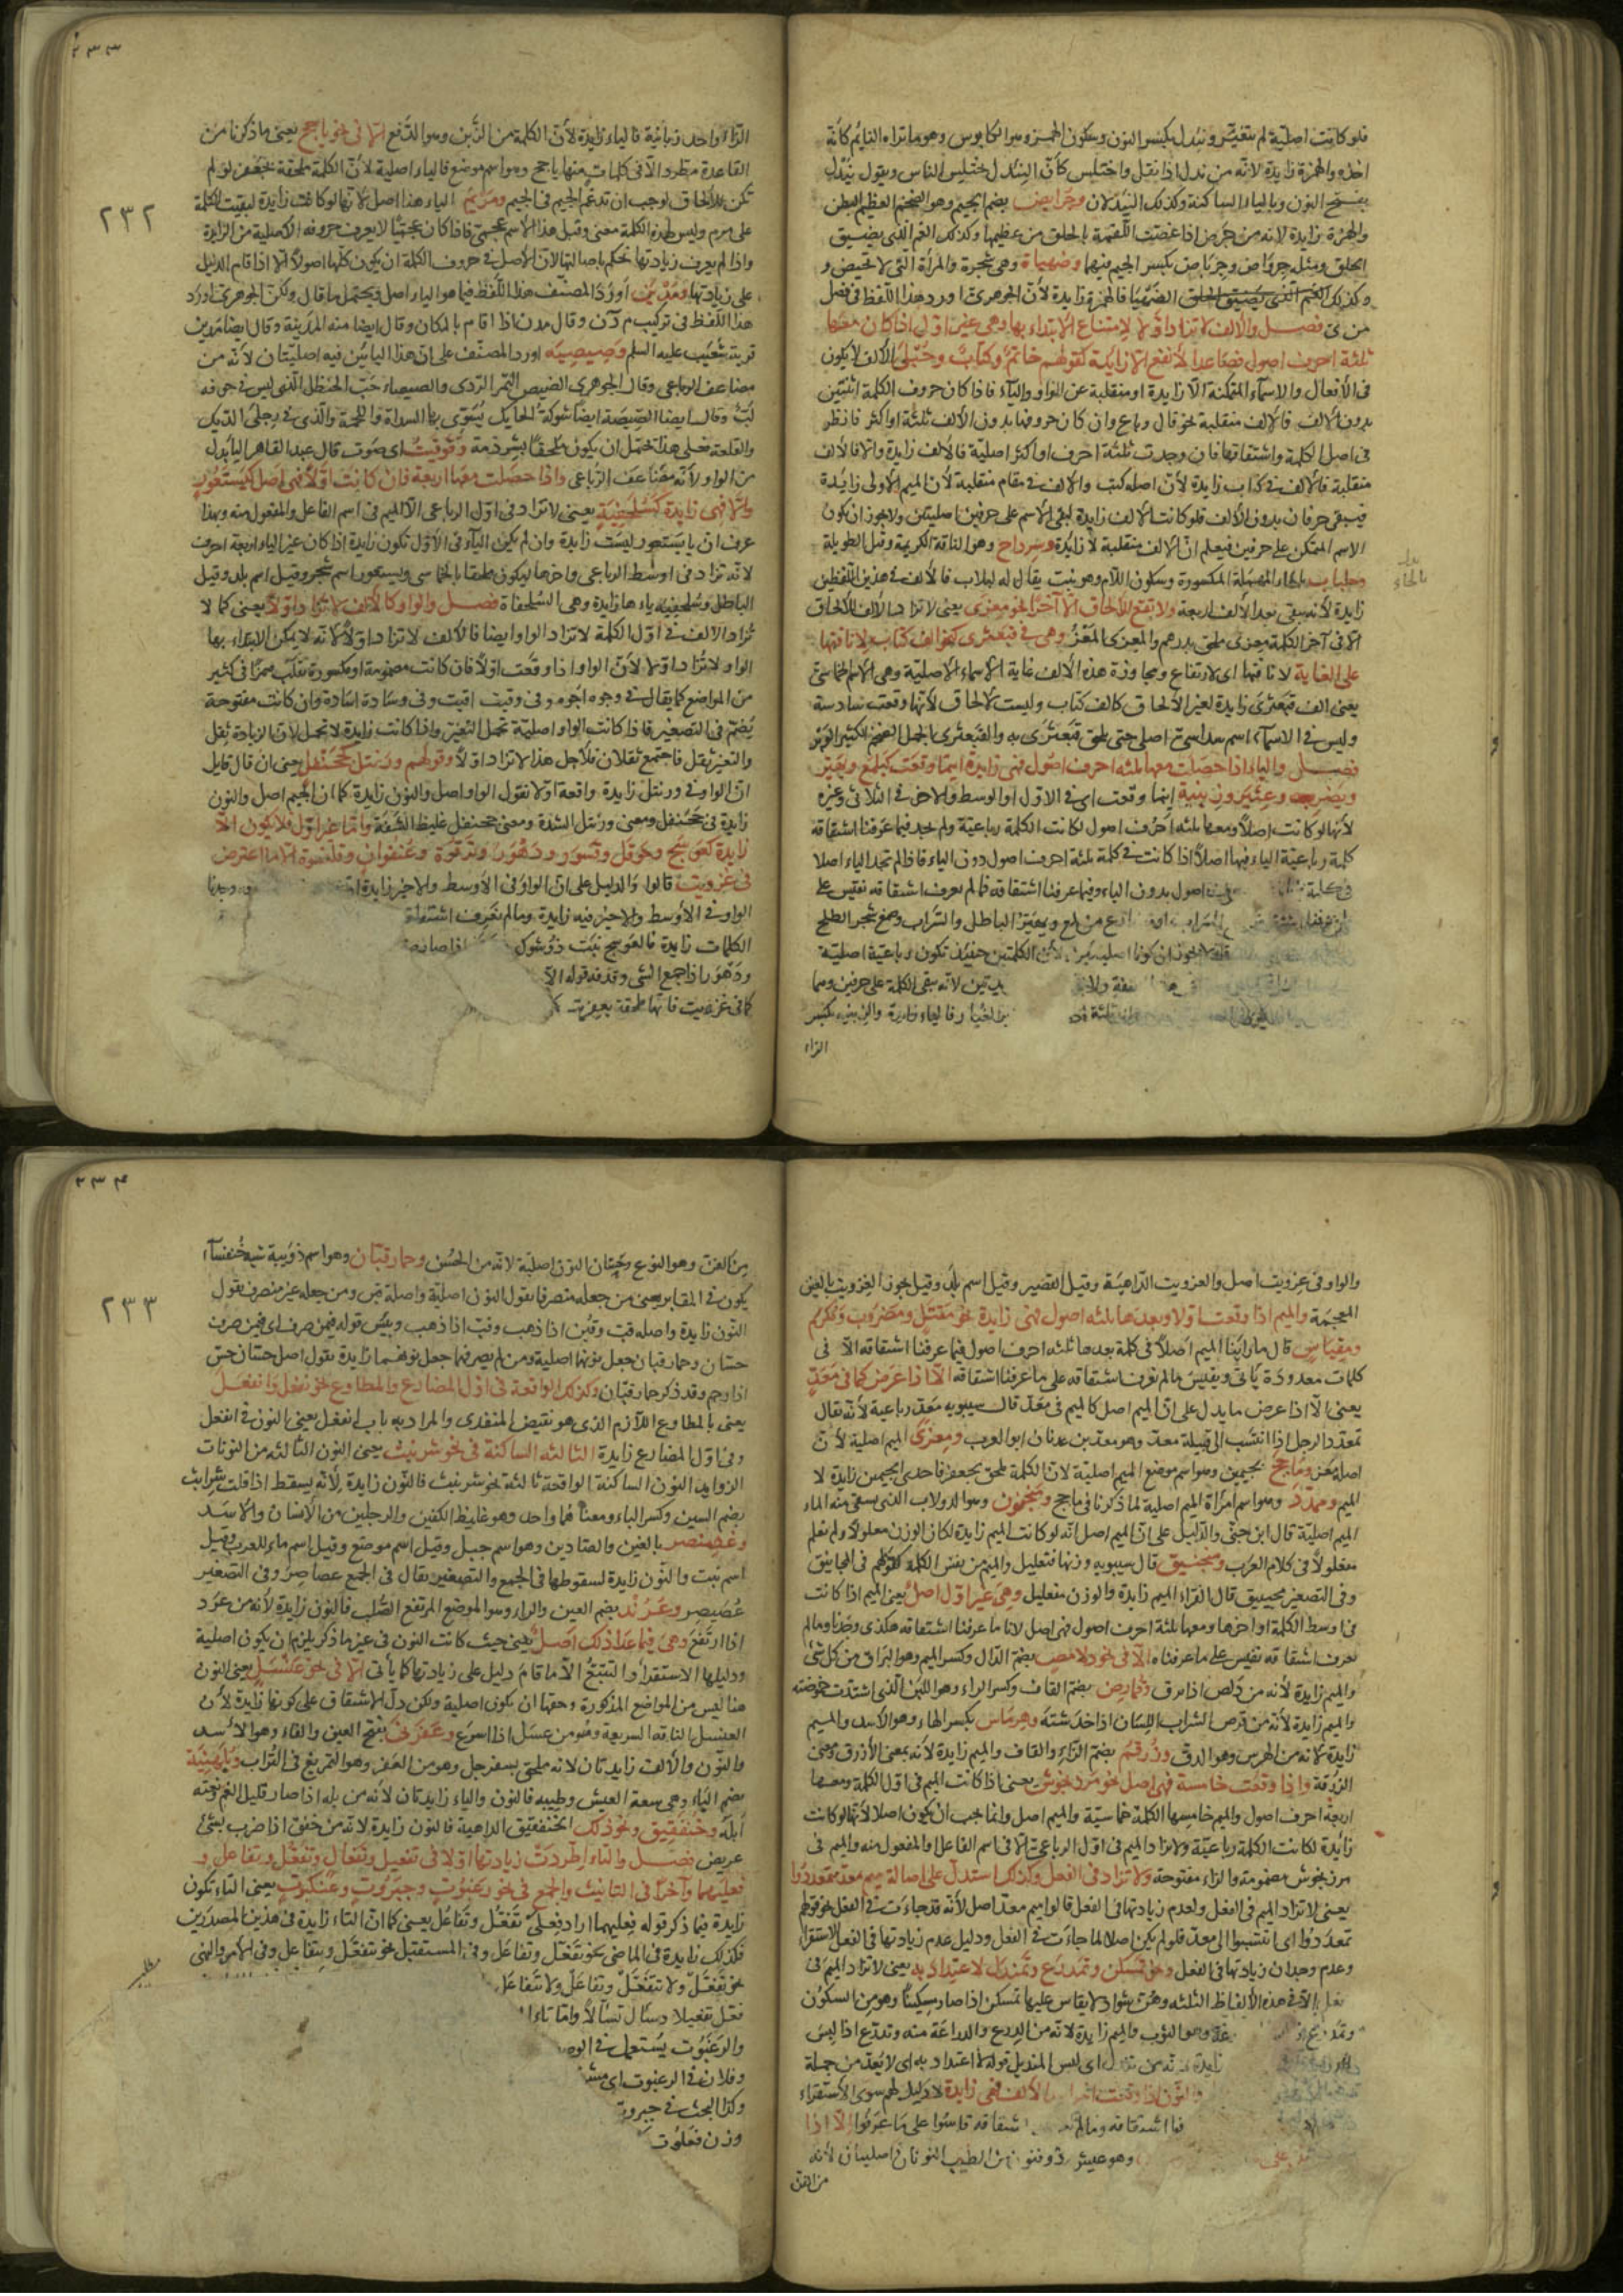 فلو كانت اصلية لم يتغير ونئدل بكسر النون وسكون الهمزة وهو الكابوس وهو ما تراه النايم كانه
اخذه والهمزة زايدة لانه من ندل اذا نقل واختلس كأن النئدل يختلس الناس ويقول نيدل
بفتح النون وبالياء الساكنة وكذلك النيدلان وجرايض بضم الجيم وهو الضخم العظيم البطن
والهمزة زايدة لانه من جرض اذا غصت اللقمة بالحلق من عظمها وكذلك الغم الذى يضيق
الحلق ومثله جرواض وجرياض بكسر الجيم فيهما وضهياة وهى شجرة والمرأة التى لا تحيض و
وكذلك الغم الذى يضيق الحلق الضهيا فالهمزة زايدة لأن الجوهرى اورد هذا اللفظ فى فصل
ض ى فصل والالف لا تزاد اولا لامتناع الابتداء بها وهى غير اول اذا كان معها
ثلثة احرف اصول فصاعدا لا تقع الا زايدة كقولهم خاتم وكتاب وحبلى الالف لا يكون
فى الأفعال والاسماء المتمكنة الا زايدة او منقلبة عن الواو والياء فاذا كان حروف الكلمة اثنين
بدون الألف فالالف منقلبة نحو قال وباع وان كان حروفها بدون الالف ثلثة او اكثر فانظر
فى اصل الكلمة واشتقاقها فان وجدت ثلثة احرف او اكثر اصلية فالالف زايدة والا فالالف
منقلبة فالالف فى كتاب زايدة لأن اصله كتب والالف فى مقام منقلبة لأن الميم الأولى زايدة
فيبقى حرفان بدون الألف فلو كانت الالف زايدة لبقى الاسم على حرفين اصليتين ولا يجوز ان يكون
الاسم المتمكن على حرفين فيعلم ان الالف منقلبة لا زايدة وسرداح وهو الناقة الكريمة وقيل الطويلة
وحلباب بالحاء المهملة المكسورة وسكون اللام وهو نبت يقال له لبلاب فالألف فى هذين اللفظين
زايدة لأنه بقى بعد الألف اربعة ولا تقع للالحاق الا آخرا نحو معزى يعنى لا تزاد الالف للالحاق
الا فى آخر الكلمة معزى ملحق بدرهم والمعزى المعز وهى فى قبعثرى كنحو الف كتاب لانافتها
على الغاية لانافتها اى لارتفاع ومجاوزة هذه الألف غاية الاسماء الاصلية وهى الاسم الخماسى
يعنى الف قبعثرى زايدة لغير الالحاق كالف كتاب وليست للالحاق لأنها وقعت سادسة
وليس فى الاسماء اسم سداسى اصلى حتى يلحق قبعثرى به والقبعثرى الجمل الضخم الكثير الوبر
فصل والياء اذا حصلت معها ثلثة احرف اصول فهى زايدة اينما وقعت كيلمع ويهير
ويضرب وعثير وزبنية اينما وقعت اى فى الاول او الوسط والاخر فى الثلاثى وغيره
لأنها لو كانت اصلا ومعها ثلثة احرف اصول لكانت الكلمة رباعية ولم نجد فيما عرفنا اشتقاقه
كلمة رباعية الياء فيها اصلا اذا كانت فى كلمة ثلثة احرف اصول دون الياء فاذا لم نجد الياء اصلا
اصول بدون الياء وفيما عرفنا اشتقاقه فما لم نعرف اشتقاقه نقيس على
من لمع ويهير الباطل والسراب وصمغ شجر الطلح
لأن الكلمتين حينئذ تكون رباعية اصلية
لانه يبقى الكلمة على حرفين وهما
فالياء زايدة والزبنية بكسر
الزاء
بدل
بالحاء
٢٣٣
٢٣٢
الزاء واحد زبانية فالياء زايدة لأن الكلمة من الزبن وهو الدفع الا فى نحو يأجج يعنى ما ذكرنا من
القاعدة مطرد الا فى كلمات منها يأجج وهو اسم موضع فالياء اصلية لأن الكلمة ملحقة بجعفر لو لم
تكن للالحاق لوجب ان تدغم الجيم فى الجيم ومريم الياء هذا اصل لانها لو كانت زايدة لبقيت الكلمة
على مرم وليس لهذه الكلمة معنى وقيل هذا الاسم عجمى فاذا كان عجميا لا يعرف حروفه الاصلية من الزايدة
واذا لم يعرف زيادتها نحكم باصالتها لان الأصل فى حروف الكلمة ان يكون كلها اصولا الا اذا قام الدليل
على زيادتها ومدين اورد المصنف هذا اللفظ فيما هو الياء اصل ويحتمل ما قال ولكن الجوهرى اورد
هذا اللفظ فى تركيب م د ن وقال مدن اذا اقام بالمكان وقال ايضا منه المدينة وقال ايضا مدين
قرية شعيب عليه السلم وصيصيه اورد المصنف على ان هذا اليائين فيه اصليتان لانه من
مضاعف الرباعى وقال الجوهرى الصيص التمر الردى والصيصاء حب الحنظل الذى ليس فى جوفه
لب وقال ايضا الصيصة ايضا شوكة الحايك يسوى بها السداة واللحمة والذى فى رجل الديك
والقلعة فعلى هذا تحتمل ان يكون ملحقا بشرذمة وقوقيت اى صوت قال عبد القاهر اليا بدل
من الواو لأنه مضاعف الرباعى واذا حصلت معها اربعة فان كانت اولا فهى اصل كيستعور
والا فهى زايدة كسلحفية يعنى لا تزاد فى اول الرباعى الا الميم فى اسم الفاعل والمفعول منه وبهذا
عرف ان يا يستعور ليست زايدة وان لم يكن الياء فى الأول تكون زايدة اذا كان غير الياء اربعة احرف
لانه تزاد فى اوسط الرباعى واخرها ليكون ملحقا بالخماسى ويستعور اسم شجر وقيل اسم بلد وقيل
الباطل وسلحفية ياءها زايدة وهى السلحفاة فصل والواو كالالف لا تزاد اولا يعنى كما لا
تزاد الالف فى اول الكلمة لا تزاد الواو ايضا فالالف لا تزاد اولا لانه لا يمكن الابتداء بها
الواو لا تزاد اولا لأن الواو اذا وقعت اولا فان كانت مضمومة او مكسورة تقلب همزة فى كثير
من المواضع كما يقال فى وجوه اجوه وفى وقتت اقتت وفى وسادة اسادة وان كانت مفتوحة
يضم فى التصغير فاذا كانت الواو اصلية تحمل التغير واذا كانت زايدة لا تحمل لأن الزيادة ثقل
والتغير ثقل فاجتمع ثقلان فلأجل هذا لا تزاد اولا وقولهم ورنتل كجحنفل يعنى ان قال قايل
ان الواو فى ورنتل زايدة واقعة اولا نقول الواو اصل والنون زايدة كما ان الجيم اصل والنون
زايدة فى جحنفل ومعنى ورنتل الشدة ومعنى جحنفل غليظ الشفة واما غير اول فلا يكون الا
زايدة كعوسج وحوقل وقسور ودهور وترقوة وعنفوان وقلنسوة الا ما اعترض
فى عزويت قالوا والدليل على ان الواو فى الأوسط والاخر زايدة
الواو فى الأوسط والاخير فيه زايدة وما لم نعرف اشتقاقه
الكلمات زايدة فالعوسج نبت ذو شوك
ودهور اذا جمع الشى وقذفه قوله الا
كما فى عزويت فانها ملحقة بعفريت
والواو فى عزويت اصل والعزويت الداهية وقيل القصير وقيل اسم بلد وقيل يجوز الغزويت بالغين
المعجمة والميم اذا وقعت اولا وبعدها ثلثة اصول فهى زايدة نحو مقتل ومضروب ومكرم
ومقياس قال ما راينا الميم اصلا فى كلمة بعدها ثلثة احرف اصول فيما عرفنا اشتقاقه الا فى
كلمات معدودة ياتى ونقيس ما لم نعرف اشتقاقه على ما عرفنا اشتقاقه الا اذا عرض كما فى معد
يعنى الا اذا عرض ما يدل على ان الميم اصل كالميم فى معد قال سيبويه معد رباعية لأنه يقال
تمعدد الرجل اذا انتسب الى قبيلة معد وهو معد بن عدنان ابو العرب ومعزى الميم اصلية لأن
اصله معز ومأجج بجيمين وهو اسم موضع الميم اصلية لان الكلمة ملحق بجعفر فاحدى الجيمين زايدة لا
الميم ومهدد وهو اسم امرأة الميم اصلية لما ذكرنا فى مأجج ومنجنون وهو الدولاب الذى يسقى منه الماء
الميم اصلية قال ابن جنى والدليل على ان الميم اصل انه لو كانت الميم زايدة لكان الوزن مفعلولا ولم نعلم
مفعلولا فى كلام العرب ومنجنيق قال سيبويه وزنها فنعليل والميم من نفس الكلمة كقولهم فى المجانيق
وفى التصغير مجينيق قال الفراء الميم زايدة والوزن منفعليل وهى غير اول اصل يعنى الميم اذا كانت
فى اوسط الكلمة او اخرها ومعها ثلثة احرف اصول فهى اصل لانا ما عرفنا اشتقاقه هكذى وجدنا وما لم
نعرف اشتقاقه نقيس على ما عرفناه الا فى نحو دلامص بضم الدال وكسر الميم وهو البراق من كل شئ
والميم زايدة لأنه من دلص اذا برق وقمارص بضم القاف وكسر الراء وهو اللبن الذى اشتدت حموضته
والميم زايدة لأنه من قرص الشراب اللسان اذا خدشته وهرماس بكسر الهاء وهو الاسد والميم
زايدة لانه من الهرس وهو الدق وزرقم بضم الزاء والقاف والميم زايدة لأنه بمعنى الأزرق ومعنى
الزرقة واذا وقعت خامسة فهى اصل نحو مرزنجوش يعنى اذا كانت الميم فى اول الكلمة ومعها
اربعة احرف اصول والميم خامسها الكلمة خماسية والميم اصل وانما يجب ان يكون اصلا لأنها لو كانت
زايدة لكانت الكلمة رباعية ولا تزاد الميم فى اول الرباعى الا فى اسم الفاعل والمفعول منه والميم فى
مرزنجوش مضمومة والزاء مفتوحة ولا تزاد فى الفعل وكذلك استدل على اصالة ميم معد بتمعددوا
يعنى لا تزاد الميم فى الفعل ولعدم زيادتها فى الفعل قالوا ميم معد اصل لأنه قد جاءت فى الفعل نحو قولهم
تمعددوا اى انتسبوا الى معد فلو لم يكن اصلا لما جاءت فى الفعل ودليل عدم زيادتها فى الفعل الاستقراء
وعدم وجدان زيادتها فى الفعل ونحو تمسكن وتمدرع وتمندل لا اعتداد به يعنى لا تزاد الميم فى
الا فى هذه الألفاظ الثلثة وهن شواذ لا يقاس عليها تمسكن اذا صار مسكينا وهو من السكون
وهو الثوب والميم زايدة لانه من الدرع والدراعة منه وتدرع اذا لبس
اى لبس المنديل قوله لا اعتداد به اى لا يعد من جملة
والنون اذا وقعت اخرا بعد الالف فهى زايدة لا دليل لهم سوى الاستقراء
اشتقاقه وما لم اشتقاقه قاسوا على ما عرفوا الا اذا
وهو عيش ذو فنون من الطيب النونان اصليان لأنه
من الفن
٢٣٤
٢٣٣
من الفن وهو النوع وحسان النون اصلية لانه من الحسن وحمار قبان وهو اسم دويبة شبه خنفساء
يكون فى المقابر يعنى من جعله منصرفا يقول النون اصلية واصله قبن ومن جعله غير منصرف يقول
النون زايدة واصله قب وقبن اذا ذهب وقب اذا ذهب ويبس قوله فيمن صرف اى فمن صرف
حسان وحمار قبان جعل نونهما اصلية ومن لم يصرفهما جعل نونهما زايدة يقول اصل حسان حس
اذا وجع وقد ذكر حمار قبان وكذلك الواقعة فى اول المضارع والمطاوع نحو نفعل وانفعل
يعنى بالمطاوع اللازم الذى هو نقيض المتعدى والمراد به باب انفعل يعنى النون فى انفعل
وفى اول المضارع زايدة الثالثة الساكنة فى نحو شرنبث يعنى النون الثالثة من النونات
الزوايد النون الساكنة الواقعة ثالثة نحو شرنبث فالنون زايدة لأنه يسقط اذا قلت شرابث
بضم الشين وكسر الباء ومعناهما واحد وهو غليظ الكفين والرجلين من الأنسان والأسد
وعصنصر بالعين والصادين وهو اسم جبل وقيل اسم موضع وقيل اسم ماء للعرب وقيل
اسم نبت والنون زايدة لسقوطها فى الجمع والتصغير يقال فى الجمع عصاصر وفى التصغير
عصيصر وعرند بضم العين والراء وهو الموضع المرتفع الصلب فالنون زايدة لأنه من عرد
اذا ارتفع وهى فيما عدا ذلك اصل يعنى حيث كانت النون فى غير ما ذكر يلزم ان يكون اصلية
ودليلها الاستقراء والتتبع الا ما قام دليل على زيادتها كما يأتى الا فى نحو عنسل يعنى النون
هنا ليس من المواضع المذكورة وحقها ان يكون اصلية ولكن دل الاشتقاق على كونها زايدة لأن
العنسل الناقة السريعة وهو من عسل اذا اسرع وعفرنى بفتح العين والفاء وهو الاسد
والنون والألف زايدتان لانه ملحق بسفرجل وهو من العفر وهو التمريغ فى التراب وبلهنية
بضم الباء وهى سعة العيش وطيبه فالنون والياء زايدتان لأنه من بله اذا صار قليل الغم ومنه
أبله وخنفقيق ونحو ذلك الخنفقيق الداهية فالنون زايدة لانه من خفق اذا ضرب بشئ
عريض فصل والتاء اطردت زيادتها اولا فى نحو تفعيل وتفعال وتفعل وتفاعل و
فعليهما وآخرا فى التأنيث والجمع فى نحو رغبوت وجبروت وعنكبوت يعنى التاء تكون
زايدة فيما ذكر قوله فعليهما اراد فعلى تفعل وتفاعل يعنى كما ان التاء زايدة فى هذين المصدرين
فكذلك زايدة فى الماضى نحو تفعل وتفاعل وفى المستقبل نحو يتفعل ويتفاعل وفى الامر والنهى
نحو تفعل ولا تتفعل وتفاعل ولا تتفاعل
فعل تفعيلا وسئال تسئالا واما تاء
والرغبوت يستعمل فى
وفلان فى الرغبوت اى
وكذا البحث فى جبروت
وزن فعلوت
مطلب